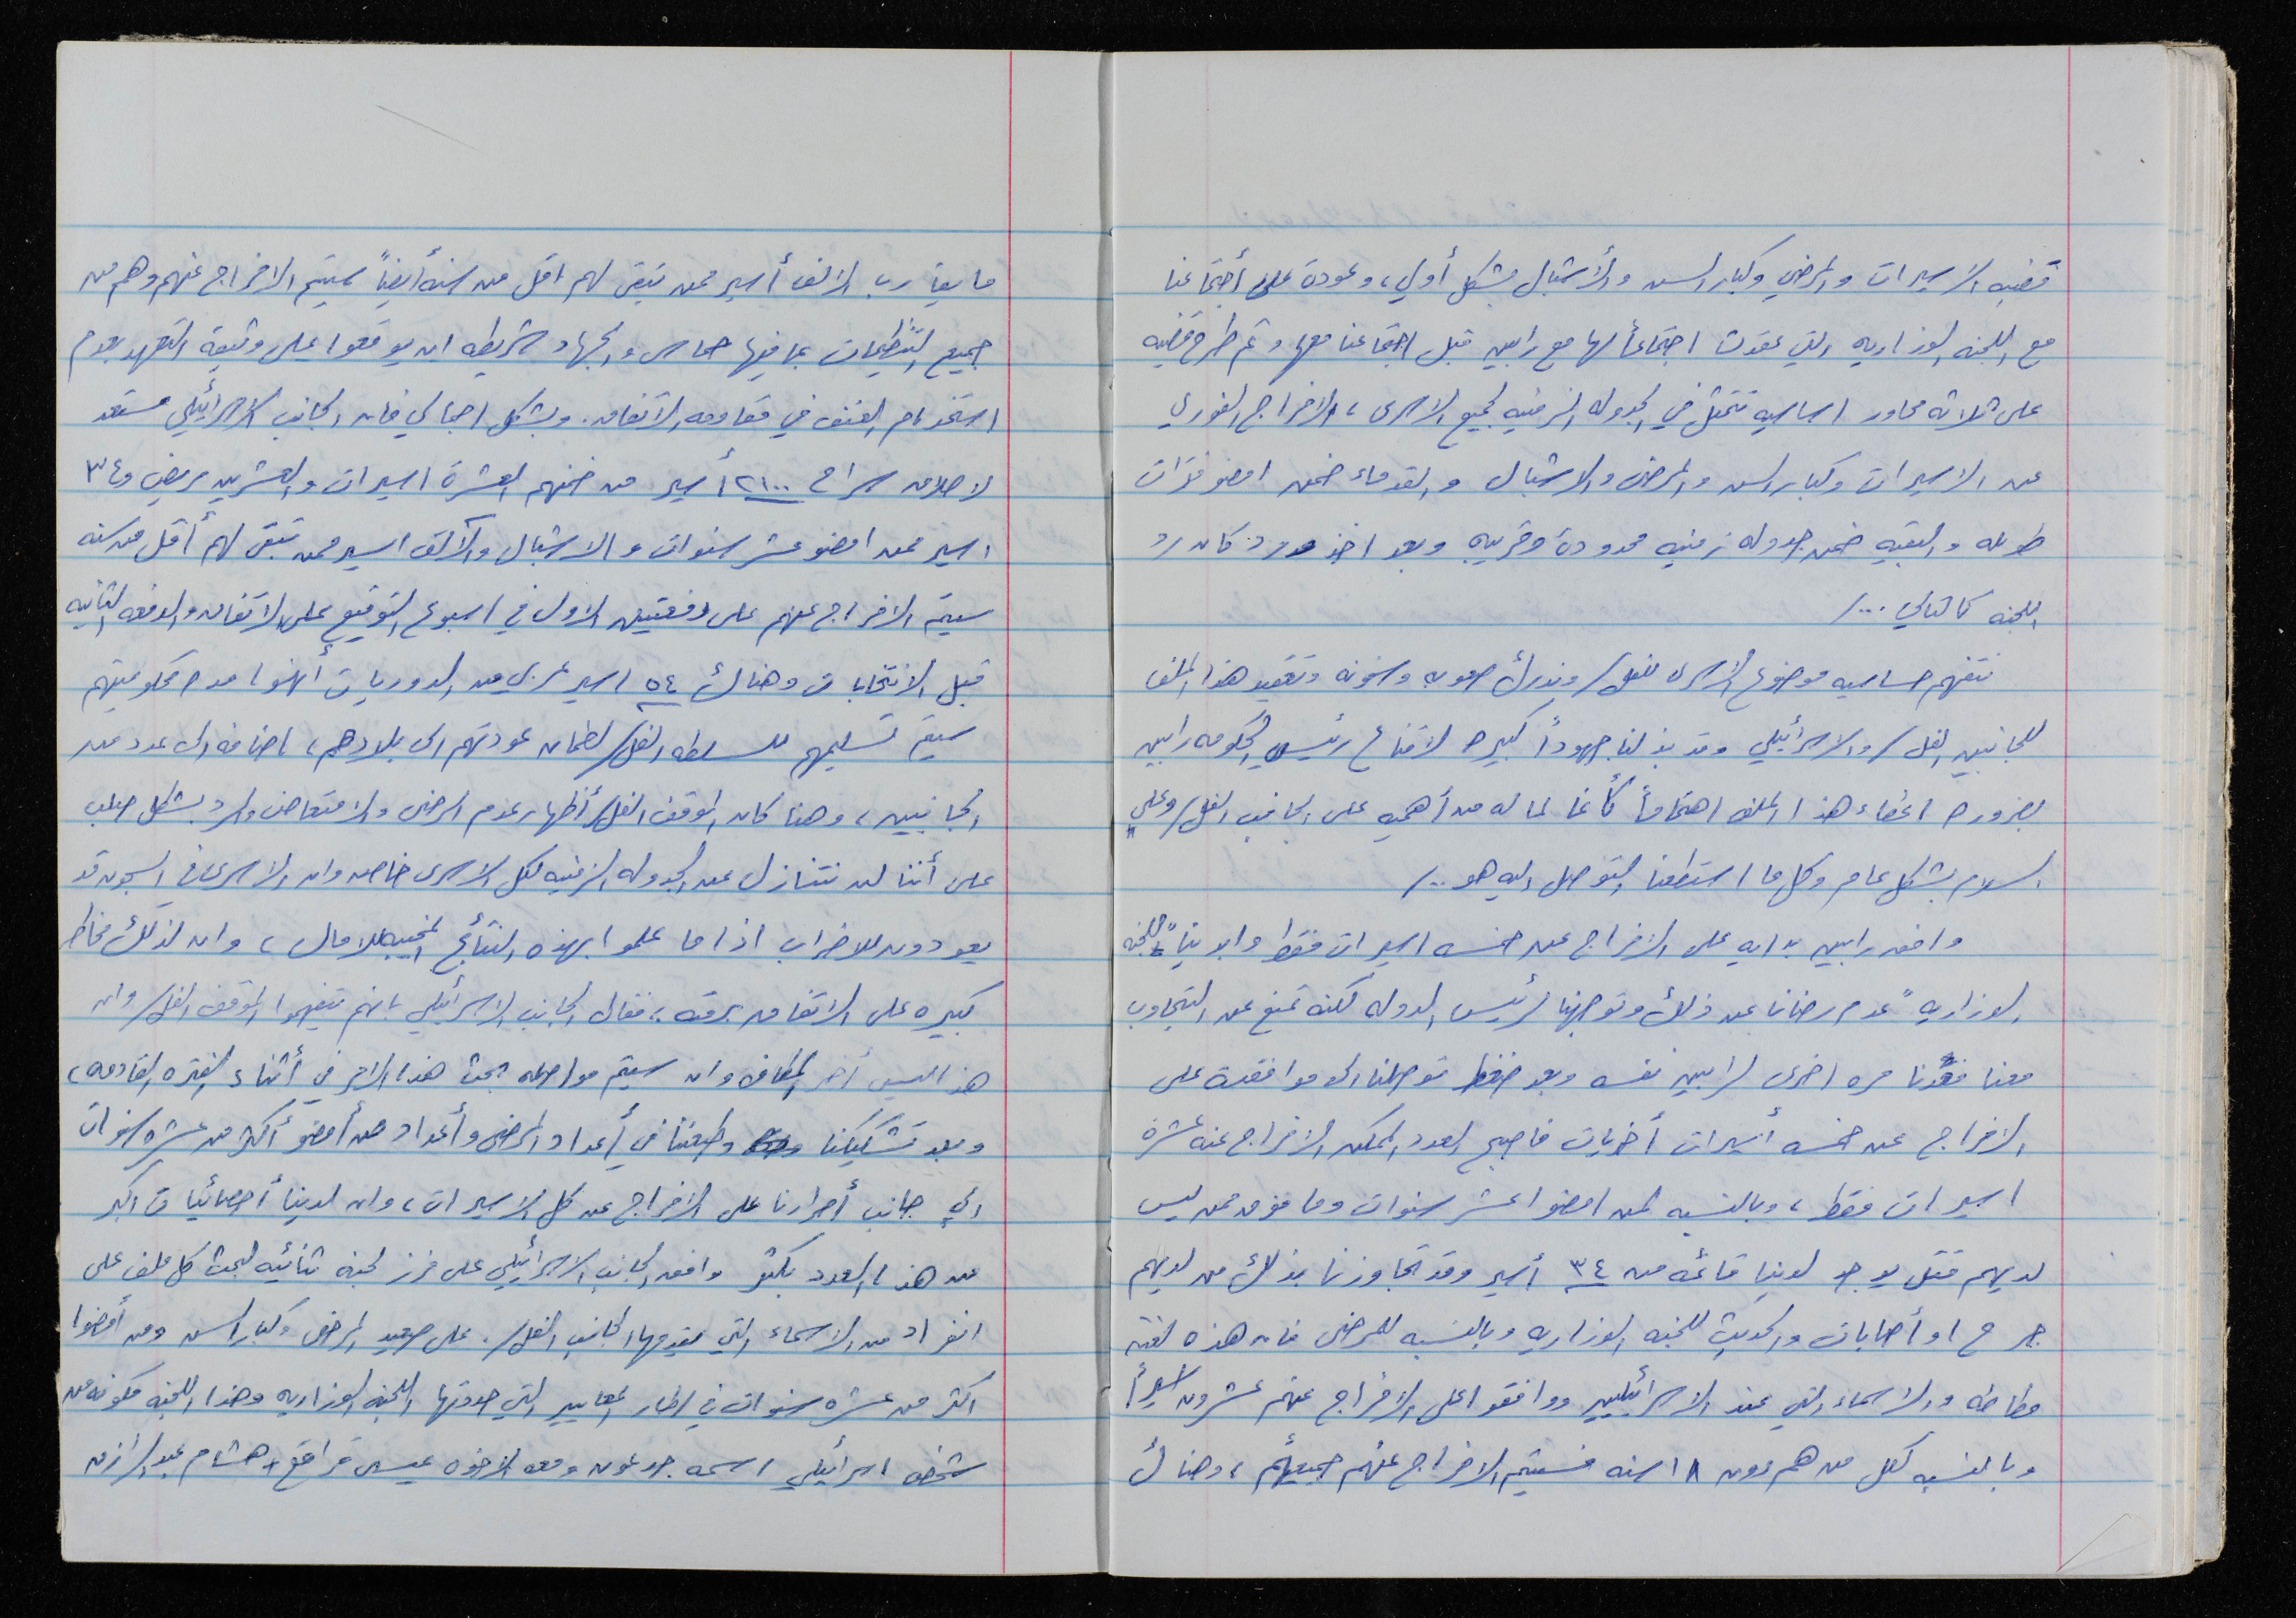 قضيه الاسيرات والمرضى وكبار السن والأشبال بشكل أولي، وعودة على أجتماعنا
مع اللجنه الوزاريه التي عقدت اجتماعاً لها مع رابين قبل اجتماعنا معها وتم طرح قضيه
على ثلاثه محاور اساسيه تتمثل في الجدوله الزمنيه لجميع الاسرى، الافراج الفوري
عن الاسيرات وكبار السن والمرضى والاشبال والقدماء ضمن امضو فترات
طويله والبقيه ضمن جدوله زمنيه محدودة وقريبه وبعد اخذ ورد كان رد
اللجنه كالتالي .../
نتفهم حساسيه موضوع الأسرى للفل/ وندرك صعوبه وسخونه وتعقيد هذا الملف
للجانبين الفل/ والاسرائيلي وقد بذلنا جهوداً كبيره لاقناع رئيس الحكومه رابين
بضروره اعطاء هذا الملف اهتماماً لما له من أهميه على الجانب الفل/ وعلى
السلام بشكل عام وكل ما استطعنا التوصل اليه هو ../
وافق رابين بدايه على الافراج عن خمسه اسيرات فقط وابدينا "اللجنه
الوزاريه" عدم رضانا عن ذلك وتوجهنا لرئيس الدوله لكنه تمنع عن التجاوب
معنا فعدنا مره اخرى لرابين نفسه وبعد ضغط توصلنا الى موافقته على
الافراج عن خمسه أسيرات أخريات فاصبح العدد الممكن الافراج عنه عشرة
اسيرات فقط، وبالنسبه لمن امضوا عشر سنوات وما فوق ممن ليس
لديهم قتل يوجد لدينا قائمه من ٣٤ أسير وقد تجاوزنا بذلك من لديهم
جرح او أصابات والحديث للجنه الوزاريه وبالنسبه للمرضى فان هذه لغته
مطاطه والاسماء التي عند الاسرائيليين ووافقوا على الافراج عنهم عشرون اسيراً
وبالنسبه لكل من هم دون ١٨ سنه فسيتم الافراج عنهم جميعهم، وهناك
ما يقارب الالف أسير ممن تبقى لهم اقل من سنه أيضاً سيتم الافراج عنهم وهم من
جميع التنظيمات بما فيها حماس والجهاد شريطه ان يوقعوا على وثيقة التعهد بعدم
استخدام العنف في مقاومه الاتفاق. وبشكل اجمالي فان الجانب الاسرائيلي مستعد
لاطلاق سراح ٢١٠٠ أسير من ضنهم العشرة اسيرات والعشرين مريض و٣٤
اسير ممن امضو عشر سنوات والاشبال والألف اسير ممن تبقى لهم أقل من سنه
سيتم الافراج عنهم على دفعتين الاولى في اسبوع التوقيع على الاتفاق والدفعه الثانيه
قبل الانتخابات وهناك ٥٤ اسير عربي من الدوريات أنهوا مدة محكوميتهم
سيتم تسليمهم للسلطه الفل/ لضمان عودتهم الى بلادهم، اضافه الى عدد من
الجانبيين، وهنا كان الموقف الفل/ أظهار عدم الرضى والامتعاض والرد بشكل صلب
على أننا لن نتنازل عن الجدوله الزمنيه لكل الاسرى خاصه وان الاسرى في السجون قد
يعودون للاضراب اذا ما علموا بهذه النتائج المخيبه للامال، وان لذلك مخاطر
كبيره على الاتفاق برمته، فقال الجانب الاسرائيلي بانهم تفهموا الموقف الفل/ وان
هذا ليس أخر المطاف وان سيتم مواصله بحث هذا الامر في أثناء الفتره القادمه،
وبعد تشكيكنا وطعننا في أعداد المرضى وأعداد من أمضو أكثر من عشره سنوات
الى جانب أصرارنا على الافراج عن كل الاسيرات، وان لدينا أحصائيات اكبر
من هذا العدد بكثير وافق الجانب الاسرائيلي على فرز لجنه ثنائيه لبحث كل ملف على
انفراد من الاسماء التي يقدمها الجانب الفل/. على صعيد المرضى وكبار السن ومن أمضوا
اكثر من عشره سنوات في اطار المعايير التي حددتها اللجنه الوزاريه وهذا اللجنه مكونه من
شخص اسرائيلي اسمه جدعون ومعه الاخوه عيسى قراقع وهشام عبد الرازق